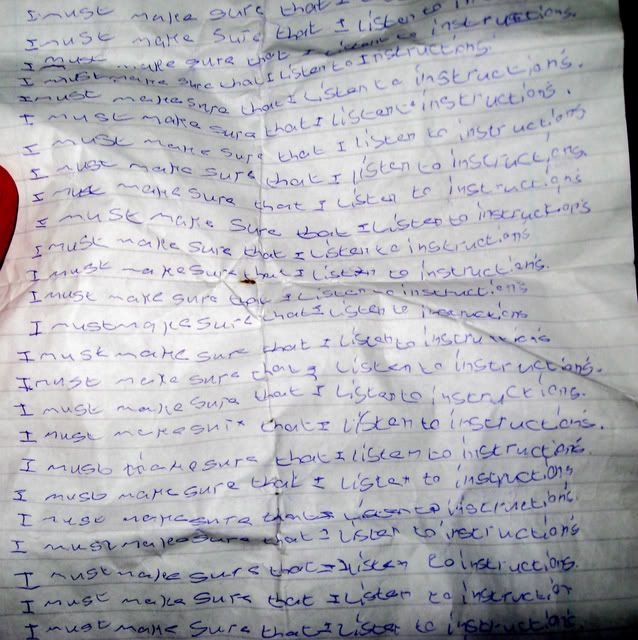 I must make sure that I listen to instructions.
I must make sure that I listen to instructions.
I must make sure that I listen to instructions.
I must make sure that I listen to instructions.
I must make sure that I listen to instructions.
I must make sure that I listen to instructions.
I must make sure that I listen to instructions
I must make sure that I listen to instructions.
I must make sure that I listen to instructions
I must make sure that I listen to instructions
I must make sure that I listen to instructions
I must make sure that I listen to instructions.
I must make sure that I listen to instructions
I must make sure that I listen to instructions
I must make sure that I listen to instructions
I must make sure that I listen to instructions.
I must make sure that I listen to instructions.
I must make sure that I listen to instructions.
I must make sure that I listen to instructions.
I must make sure that I listen to instructions
I must make sure that I listen to instructions.
I must make sure that I listen to instructions
I must make sure that I listen to instructions.
I must make sure that I listen to instruction
I must make sure that I listen to instructions